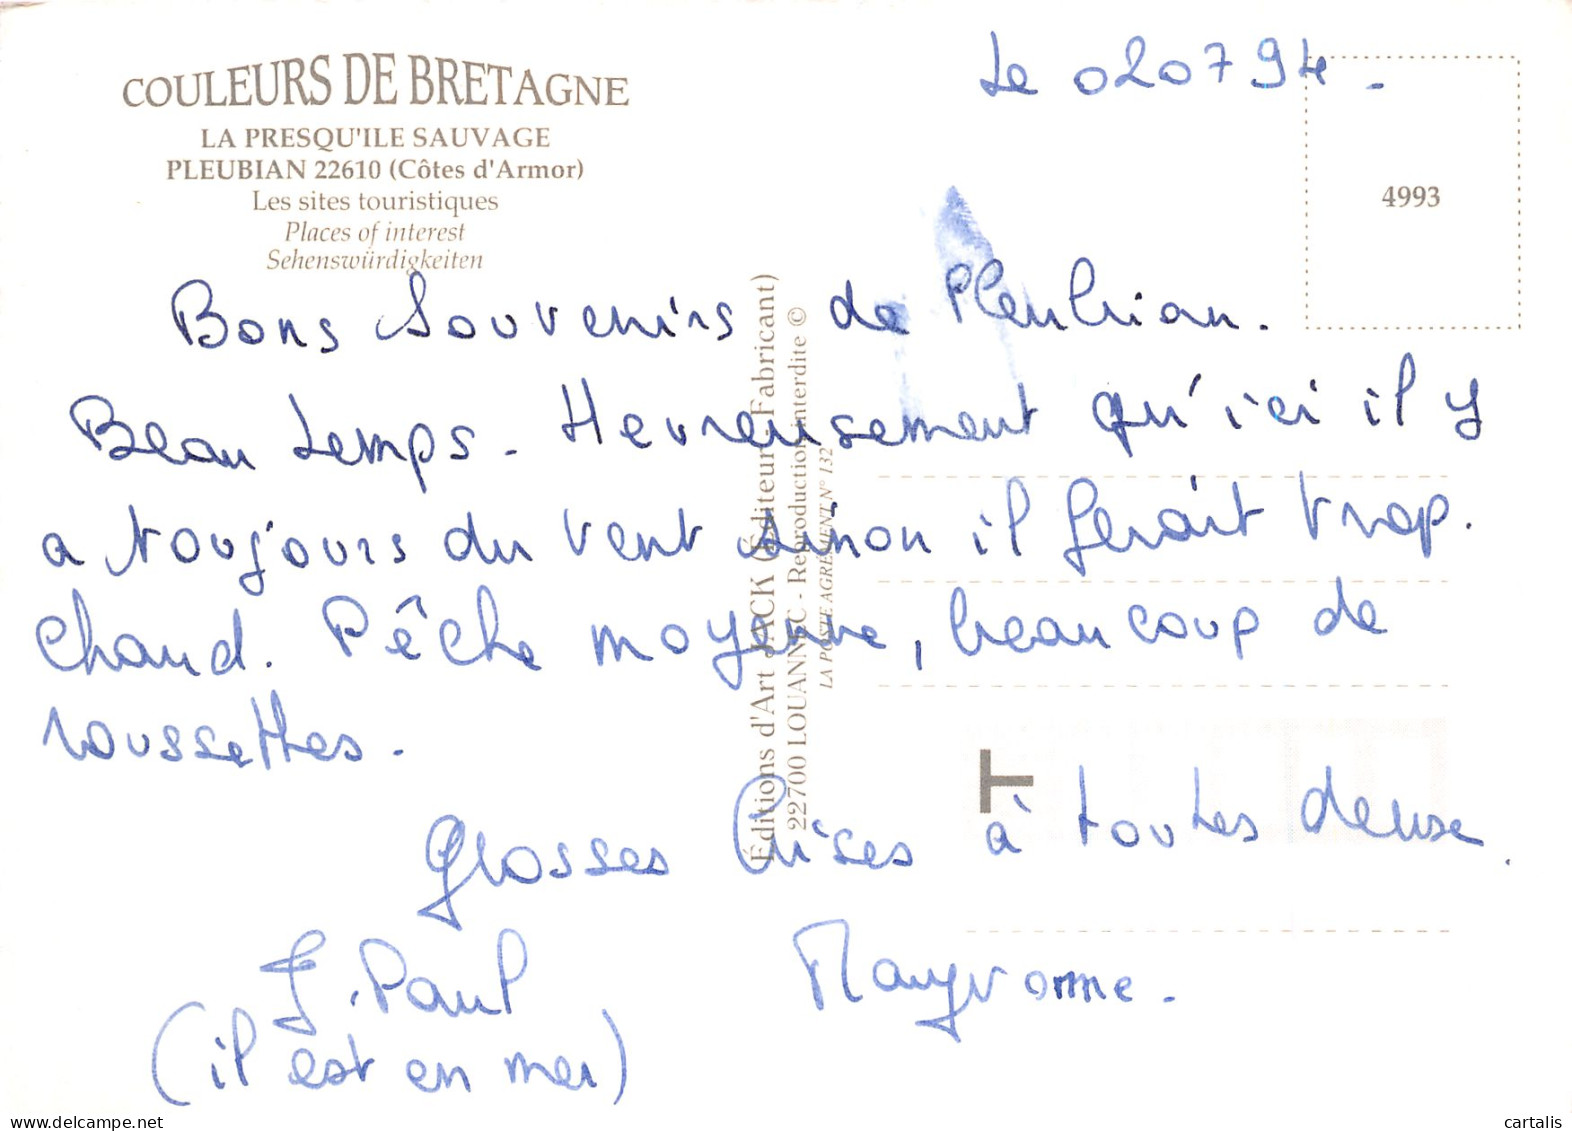 COULEURS DE BRETAGNE
LA PRESQU'ILE SAUVAGE
PLEUBIAN 22610 (Côtes d'Armor)
Les sites touristiques
Places of interest
Sehenswürdigkeiten
Le 020794.
4993
Bons Souvenirs de Pleubian.
Beau temps. Heureusement qu'ici il y
a toujours du vent sinon il ferait trop.
chaud. Pêche moyenne, beaucoup de
roussettes.
Grosses Bises à toutes deux.
J. Paul
(il est en mer)
Maryvonne.
Éditions d'Art JACK (Éditeur - Fabricant)
22700 LOUANNEC - Reproduction interdite ©
LA POSTE AGRÉMENT N° 132
T
delcampe.net
cartalis